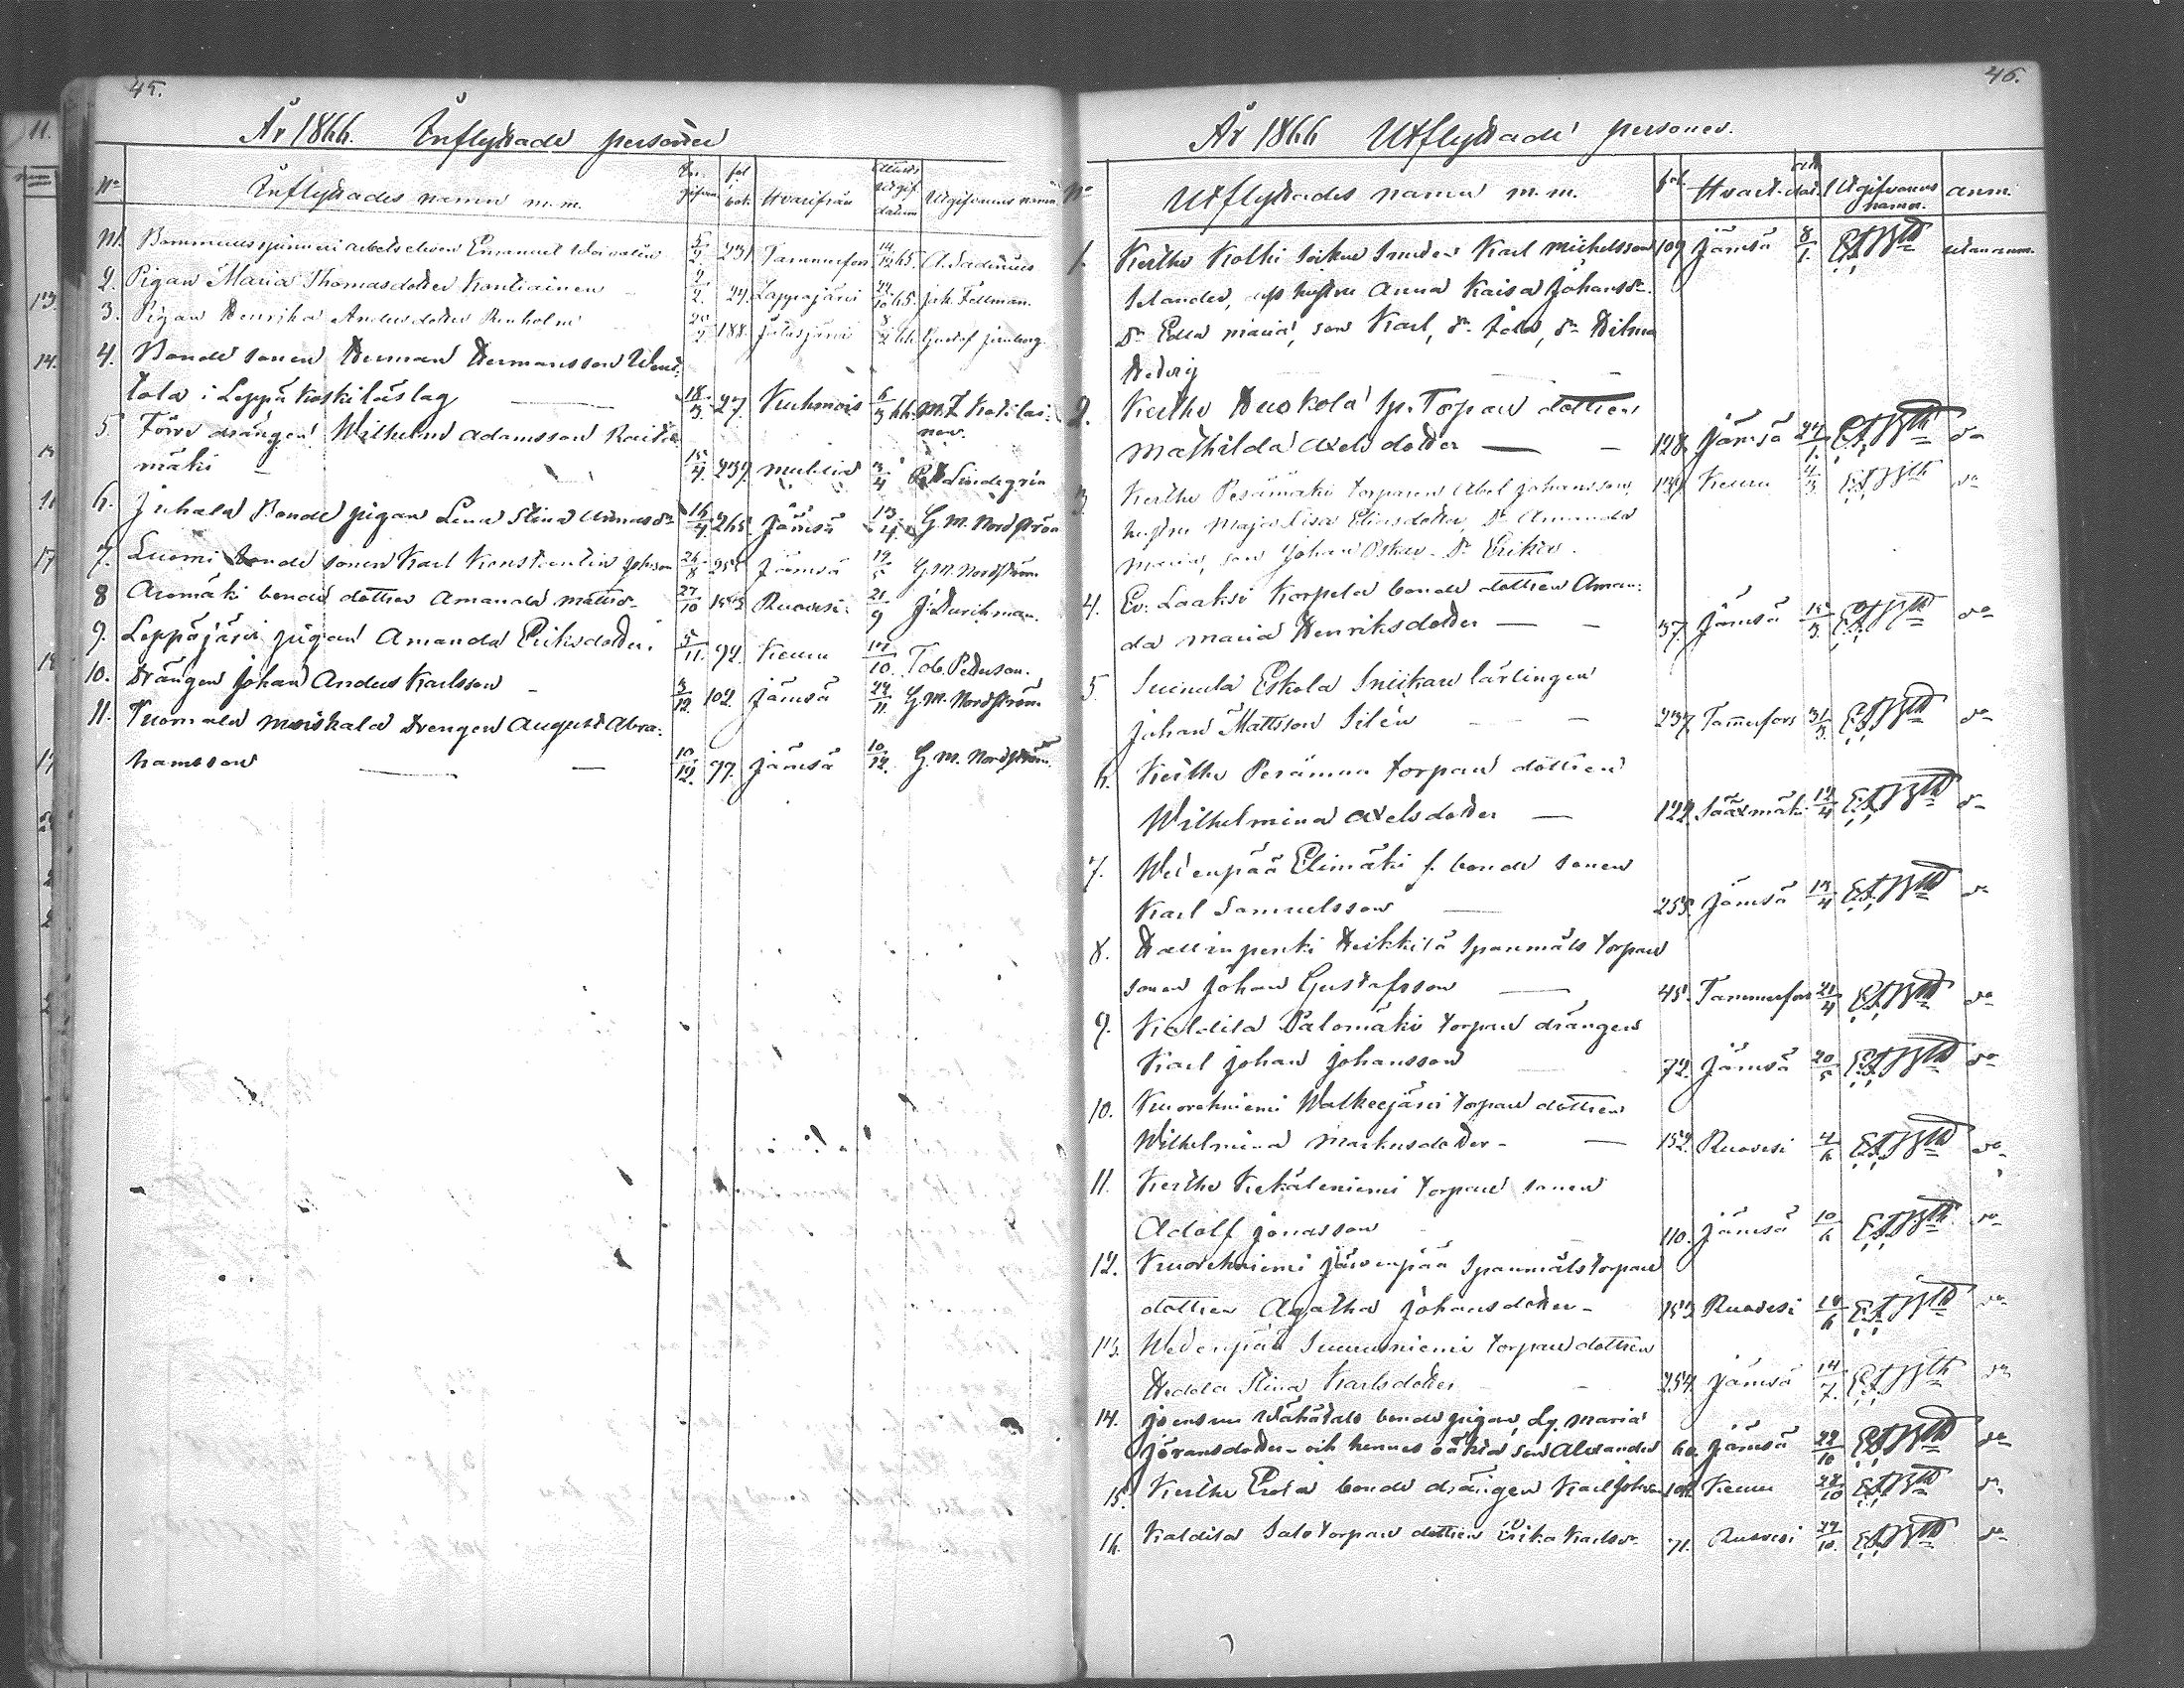 45.
År 1866. Inflyttade personer
No Inflyttades namn m.m. In- gifven fol bok Hvarifrån Attest Utgif datum Utgifvarens namn
N1. Emanuel 5/2 231 Tammerfors 14/12 65.
2. Pigan Maria Thomasdotter Kontiainen 2/2. 24 Lappajärvi 24/10 65. Joh. Fellman.
3. Pigan Henrika Andersdotter Renholm 25/2 188. Jalasjärvi Gustaf
4. Bonde sonen Herman Hermansson
tola i Leppäkoski låslag 18/3. 27. Kuhmois 5/3 66.
5. drängen Wilhelm Adamsson
mäki 15/4 239. Multia 3/4 Lindegrén
6. Juhala Bonde pigan Lena Stina 16/4. 265. Jämsä 13/4. G. M. Nordström
7. Luomi bonde sonen Karl Konstantin Johsson 26/8 255 Jämsä 19/5 G. M. Nordström
8 Aromäki bonde dottren Amanda Mattsdr 27/10 153 Ruovesi. 21/9 J. Durchman.
9. Leppäjärvi pigan Amanda Eriksdotter. 5/11. 92. Keuru 14/10. Tob. Pettersson.
10. Drängen Johan Anders Karlsson 3/12. 102. Jämsä 24/11. G. M. Nordström
11. Tuomala Moiskala Drengen August Abra-
hamsson 10/12. 77. Jämsä 10/12. G. M. Nordström.
46.
År 1866 Utflyttade personer.
No Utflyttades namn m.m. fol. Hvart. dat. Utgifvarens namn. anm.
1. Kertto Kolhi Karl Michelsson 109 Jämsä 8/1. utan anm.
Selander, hustru Anna Kaisa Johansdr.
Dr Edla Maria, son Karl, Dr Ida, Dr Hilma
Hedvig
2. Kertto Huokola Sp. Torpare dottren
Mathilda Axelsdotter 128. Jämsä 24/1. do
3 Kertto Perämäki torparen Abel Johansson, 134 Keuru 4/3 do
hustru Maja Lisa Eliasdotter, Dr Amanda
Maria, son Johan Oskar. Dr Erika.
4. Ev. Laaksi Korpela bonde dottren Aman-
da Maria Henriksdotter 37. Jämsä 15/3 do
5. Suinula Eskola Snickare lärlingen
Johan Mattsson Silén 237. Tammerfors 31/3. do
6. Kertto Perämaa torpare dottren
Wilhelmina Axelsdotter 122. Sääxmäki 12/4 do
7. Wedenpää Elimäki f. bonde sonen
Karl Samuelsson 255. Jämsä 14/4 do
8. Hallinpenki Heikkilä Spanmåls torpare
sonen Johan Gustafsson 45. Tammerfors 21/4 do
9. Kaldila Palomäki torpare drängen
Karl Johan Johansson 72. Jämsä 20/5 do
10. Kuorehniemi Walkeejärvi torpare dottren
Wilhelmina Markusdotter 152. Ruovesi 4/6 do
11. Kertto Kekäleniemi torpare sonen
Adolf Jonasson 110. Jämsä 10/6 do
12. Kuorehniemi Järvenpää Spanmåls torpare
dottren Agatha Johansdotter 153 Ruovesi 10/6 do
13. Wedenpää Suuruniemi torpare dottren
Hedda Stina Karlsdotter 254. Jämsä 14/7. do
14. Joensuu Wähätalo bonde pigan Lg. Maria
Göransdotter och hennes oäkta son Alexander 60. Jämsä 22/10 do
15. Kertto Erola bonde drängen Karl Johan Keuru 22/10 do
16. Kaldila Salo torpare dottren Erika Karlsdr 71. Ruovesi 24/10. do